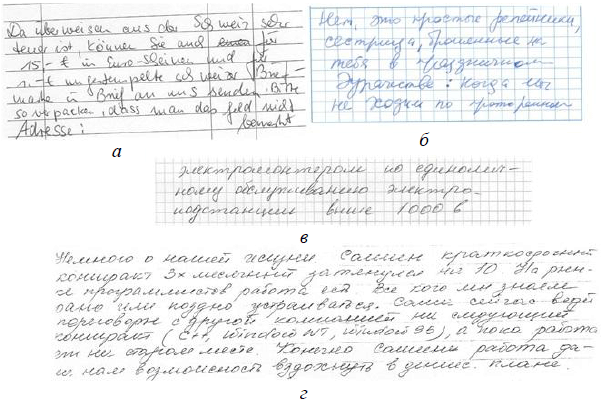 Da überweisen aus der Schweiz sehr
teuer ist können Sie auch für
15,- € in Euro-Scheinen und für
1,- € ungestempelte schweizer Brief-
marke in Brief an uns senden. Bitte
so verpacken, dass man das Geld nicht
Adresse: bemerkt
а
Нет, это простые репейники,
сестрица, брошенные на
тебя в праздничном
дурачестве: когда мы
не ходим по проторенным
б
электромонтером по единолич-
ному обслуживанию электро-
подстанции выше 1000 в
в
Немного о нашей жизни Сашин краткосрочный
контракт 3х месячный затянулся на 10 На рын-
ке программистов работа есть Все кого мы знаем
рано или поздно устраиваются. Саша сейчас ведет
переговоры с другой компанией на следующий
контракт (C++, Windows NT, Windows 95), а пока работа
на старом месте. Конечно Сашина работа да-
ла нам возможность вздохнуть в финас. плане.
г